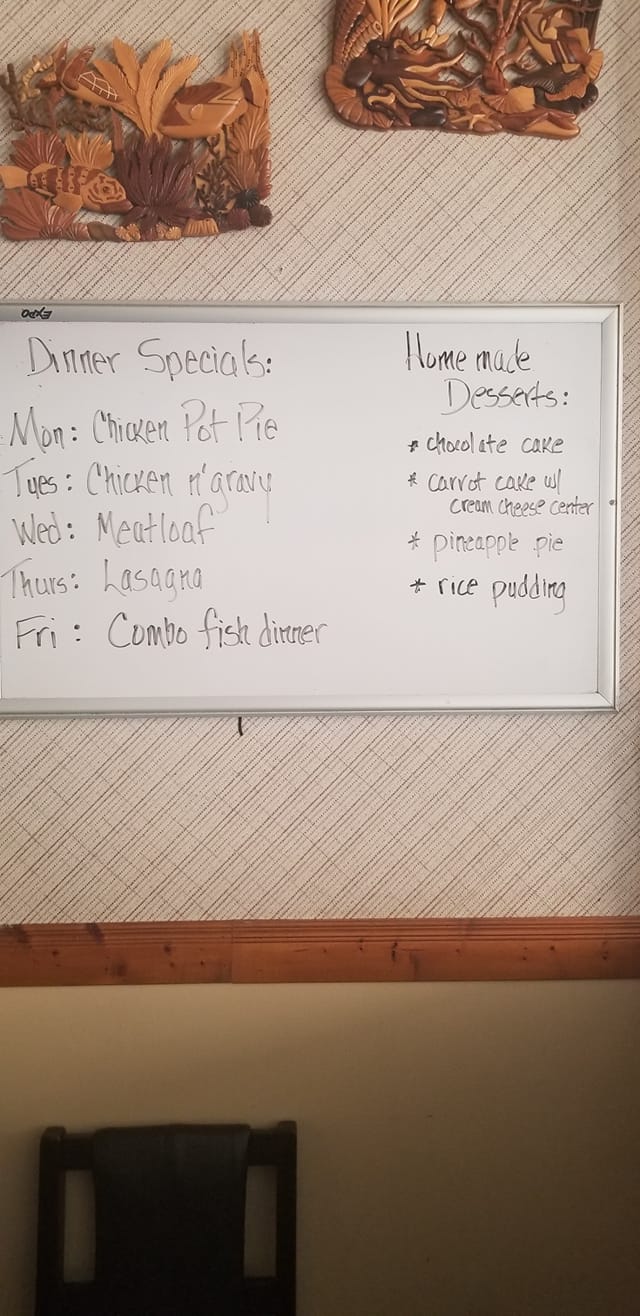 EXPO
Dinner Specials:
Mon: Chicken Pot Pie
Tues: Chicken n' gravy
Wed: Meatloaf
Thurs: Lasagna
Fri: Combo fish dinner
Home made
Desserts:
* chocolate cake
* carrot cake w/
cream cheese center
* pineapple pie
* rice pudding